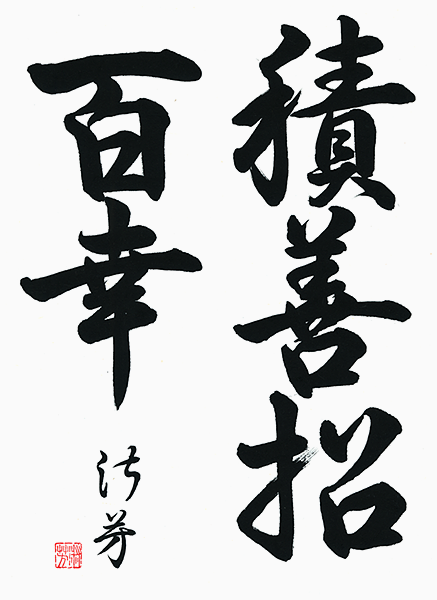 積善招
百幸